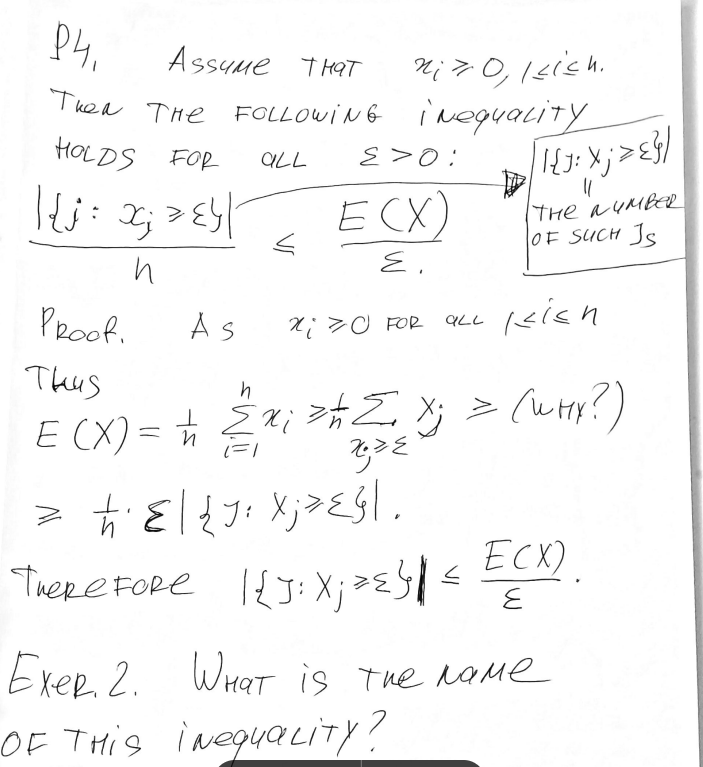 P4. Assume that x_i ≥ 0, 1≤i≤n.
Then the following inequality
holds for all ε>0:
|{j: x_j ≥ ε}| / n ≤ E(X) / ε.
|{J: X_j ≥ ε}|
=
the number
of such Js
Proof. As x_i ≥ 0 for all 1≤i≤n
Thus
E(X) = 1/n ∑_{i=1}^{n} x_i ≥ 1/n ∑_{x_j≥ε} X_j ≥ (why?)
≥ 1/n · ε|{J: X_j≥ε}|.
Therefore |{J: X_j≥ε}| ≤ E(X) / ε.
Exer. 2. What is the name
of this inequality?